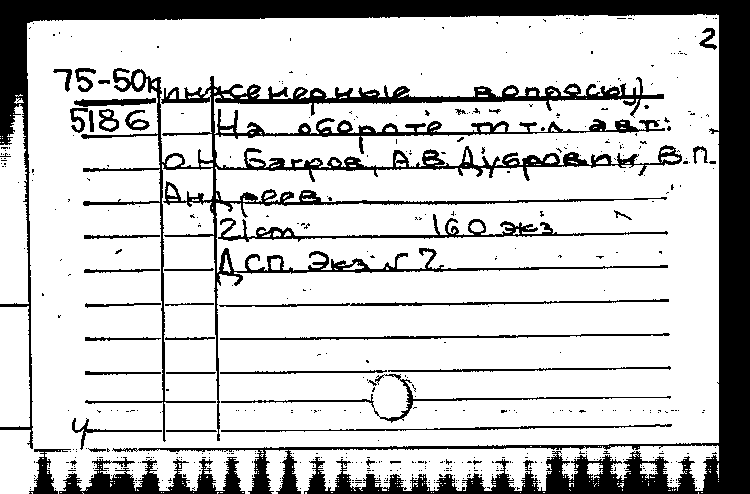 2
75-50к инженерные вопросы).
5186 На обороте тит.л. авт.:
О.Н. Багров, А.В. Дубровин, В.П.
Андреев.
21cm 160 экз
ДСП. Экз. № 7.